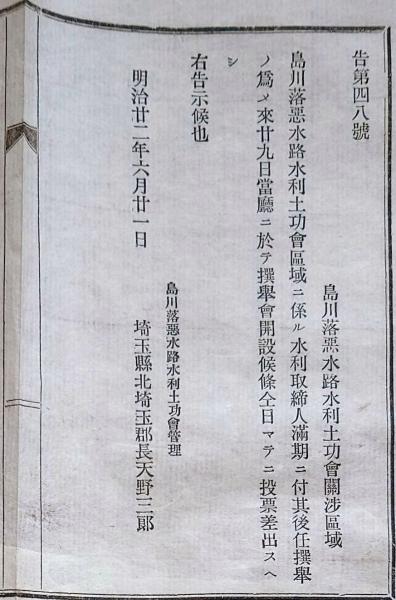 告第四八號
島川落惡水路水利土功會關涉區域
島川落惡水路水利土功會區域ニ係ル水利取締人滿期ニ付其後任撰擧
ノ爲メ來廿九日當廳ニ於テ撰擧會開設候條仝日マテニ投票差出スヘ
シ
右告示候也
明治廿二年六月廿一日
島川落惡水路水利土功會管理
埼玉縣北埼玉郡長天野三郞